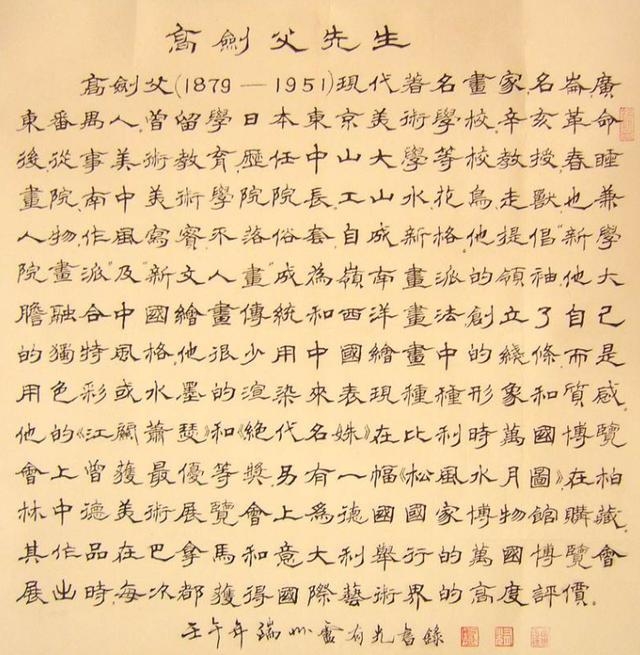 高劍父先生
高劍父(1879—1951)現代著名畫家,名崙,廣
東番禺人,曾留學日本東京美術學校,辛亥革命
後,從事美術教育,歷任中山大學等校教授,春睡
畫院,南中美術學院院長,工山水,花鳥,走獸,也兼
人物,作風寫實,不落俗套,自成新格,他提倡"新學
院畫派"及"新文人畫"成為嶺南畫派的領袖,他大
膽融合中國繪畫傳統和西洋畫法,創立了自己
的獨特風格,他很少用中國繪畫中的綫條,而是
用色彩或水墨的渲染來表現種種形象和質感,
他的《江關蕭瑟》和《絕代名姝》在比利時萬國博覽
會上曾獲最優等獎,另有一幅《松風水月圖》,在柏
林中德美術展覽會上為德國國家博物館購藏,
其作品在巴拿馬和意大利舉行的萬國博覽會
展出時,每次都獲得國際藝術界的高度評價。
壬午年 端州 盧有光書錄